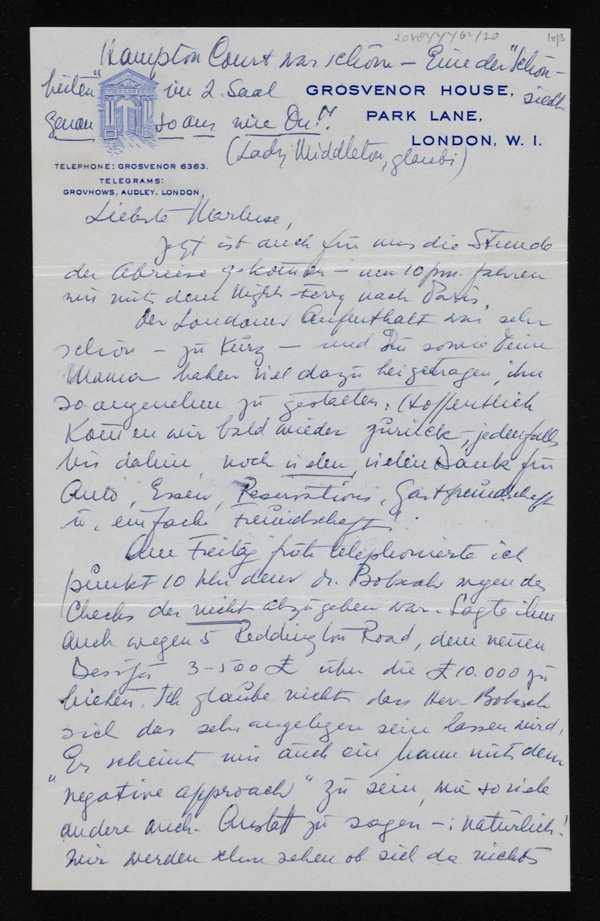 Hampton Court war schön – Eine der "Schön-
heiten" im 2. Saal sieht
genau so aus wie Du!"
(Lady Middleton, glaub i)
GROSVENOR HOUSE,
PARK LANE,
LONDON, W. I.
TELEPHONE: GROSVENOR 6363.
TELEGRAMS:
GROVHOWS, AUDLEY, LONDON.
Liebste Marluse,
Jetzt ist auch für uns die Stunde
der Abreise gekommen – um 10 pm. fahren
wir mit dem Night-ferry nach Paris.
Der Londoner Aufenthalt war sehr
schön – zu kurz – und Du sowie Deine
Mama haben viel dazu beigetragen, ihn
so angenehm zu gestalten. Hoffentlich
kommen wir bald wieder zurück –, jedenfalls
bis dahin, noch vielen, vielen Dank für
Auto, Essen, Reservations, Gastfreundschaft
u. einfache Freundschaft!
Am Freitag früh telephonierte ich
punkt 10 Uhr dem Dr. wegen des
Checks der nicht abzugeben war. Sagte ihm
auch wegen 5 Reddington Road, dem neuen
Besitzer 3–500 £ über die £ 10.000 zu
bieten. Ich glaube nicht dass Herr
sich das sehr angelegen sein lassen wird.
Er scheint mir auch ein Mann mit dem
"negative approach" zu sein, wie so viele
andere auch. Anstatt zu sagen –: natürlich!
Wir werden schon sehen ob sich da nichts